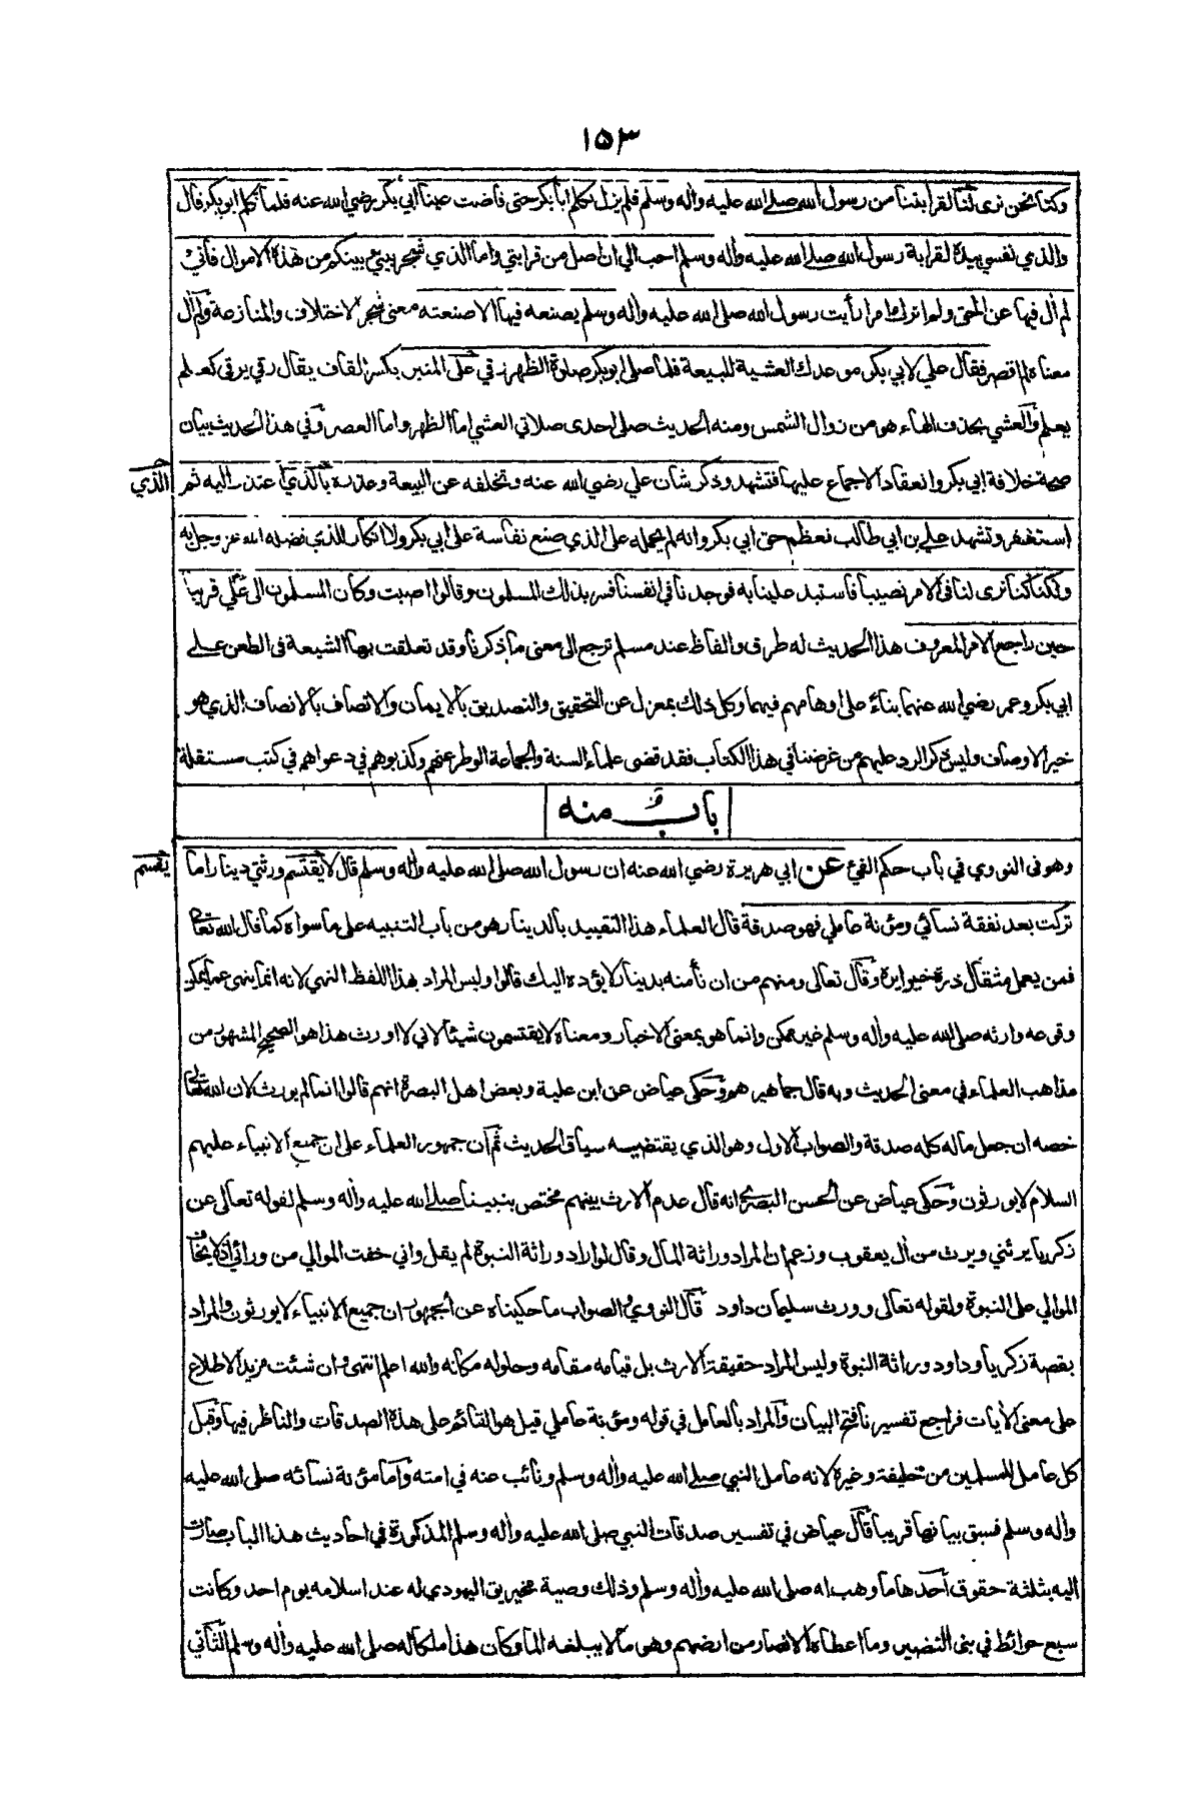 ١٥٣
وكنا نحن نرى لنا لقرابتنا من رسول الله صلى الله عليه وأله وسلم فلم يزل يكلم ابا بكر حتى فاضت عينا أبي بكر رضي الله عنه فلما تكلم ابو بكر قال
والذي نفسي بيده لقرابة رسول الله صلى الله عليه وأله وسلم احب الي ان اصل من قرابتي واما الذي شجر بيني وبينكم من هذه الاموال فأني
لم أل فيها عن الحق ولم اترك امرا رأيت رسول الله صلى الله عليه وأله وسلم يصنعه فيها الا صنعته معنى شجر الاختلاف والمنازعة ولم أل
معناه لم اقصر فقال علي لابي بكر موعدك العشية للبيعة فلما صلى ابو بكر صلوة الظهر رقي على المنبر بكسر القاف يقال رقي يرقى كعلم
يعلم والعشي بحذف الهاء هو من زوال الشمس ومنه الحديث صلى احدى صلاتي العشي اما الظهر واما العصر وفي هذا الحديث بيان
صحة خلافة ابي بكر وانعقاد الاجماع عليها فتشهد وذكر شان علي رضي الله عنه وتخلفه عن البيعة وعذره بالذي اعتذر اليه ثم
الذي
استغفر وتشهد علي بن ابي طالب فعظم حق ابي بكر وانه لم يحمله على الذي صنع نفاسة على ابي بكر ولا انكار للذي فضله الله عز وجل به
ولكنا كنا نرى لنا في الامر نصيبا فاستبد علينا به فوجدنا في انفسنا فسر بذلك المسلمون وقالوا اصبت وكان المسلمون الى علي قريبا
حين راجع الامر المعروف هذا الحديث له طرق والفاظ عند مسلم ترجع الى معنى ما ذكرنا وقد تعلقت بها الشيعة في الطعن على
ابي بكر وعمر رضي الله عنهما بناء على اوهامهم فيهما وكل ذلك بمعزل عن التحقيق والتصديق بالايمان والاتصاف بالانصاف الذي هو
خير الاوصاف وليس ذكر الرد عليهم من غرضنا في هذا الكتاب فقد قضى علماء السنة والجماعة الوطر عنهم وكذبوهم في دعواهم في كتب مستقلة
باب منه
وهو في النووي في باب حكم الفيء عن ابي هريرة رضي الله عنه ان رسول الله صلى الله عليه وأله وسلم قال لا يقتسم ورثتي دينارا ما
يقسم
تركت بعد نفقة نسائي ومؤنة عاملي فهو صدقة قال العلماء هذا التقييد بالدينار هو من باب التنبيه على ما سواه كما قال الله تعالى
فمن يعمل مثقال ذرة خيرا يره وقال تعالى ومنهم من ان تأمنه بدينار لا يؤده اليك قالوا وليس المراد بهذا اللفظ النهي لانه انما ينهى عما يمكن
وقوعه وارثه صلى الله عليه وأله وسلم غير ممكن وانما هو بمعنى الاخبار ومعناه لا يقتسمون شيئا لاني لا اورث هذا هو الصحيح المشهور من
مذاهب العلماء في معنى الحديث وبه قال جماهيرهم وحكى عياض عن ابن علية وبعض اهل البصرة انهم قالوا انما لم يورث لان الله تعالى
خصه ان جعل ماله كله صدقة والصواب الاول وهو الذي يقتضيه سياق الحديث ثم ان جمهور العلماء على ان جميع الانبياء عليهم
السلام لا يورثون وحكى عياض عن الحسن البصري انه قال عدم الارث بينهم مختص بنبينا صلى الله عليه وأله وسلم لقوله تعالى عن
زكريا يرثني ويرث من أل يعقوب وزعم ان المراد وراثة المال وقال لو اراد وراثة النبوة لم يقل واني خفت الموالي من ورائي اذ لا يخاف
الموالي على النبوة ولقوله تعالى وورث سليمان داود قال النووي والصواب ما حكيناه عن الجمهور ان جميع الانبياء لا يورثون والمراد
بقصة زكريا وداود وراثة النبوة وليس المراد حقيقة الارث بل قيامه مقامه وحلوله مكانه والله اعلم انتهى وان شئت مزيد الاطلاع
على معنى الأيات فراجع تفسيرنا فتح البيان والمراد بالعامل في قوله ومؤنة عاملي قيل هو القائم على هذه الصدقات والناظر فيها وقيل
كل عامل للمسلمين من خليفة وغيره لانه عامل النبي صلى الله عليه وأله وسلم ونائب عنه في امته واما مؤنة نسائه صلى الله عليه
وأله وسلم فسبق بيانها قريبا قال عياض في تفسير صدقات النبي صلى الله عليه وأله وسلم المذكورة في احاديث هذا الباب صارت
اليه بثلثة حقوق أحدها ما وهب له صلى الله عليه وأله وسلم وذلك وصية مخيريق اليهودي له عند اسلامه يوم احد وكانت
سبع حوائط في بني النضير وما اعطاه الانصار من ارضهم وهو ما لا يبلغه الماء وكان هذا ملكا له صلى الله عليه وأله وسلم الثاني